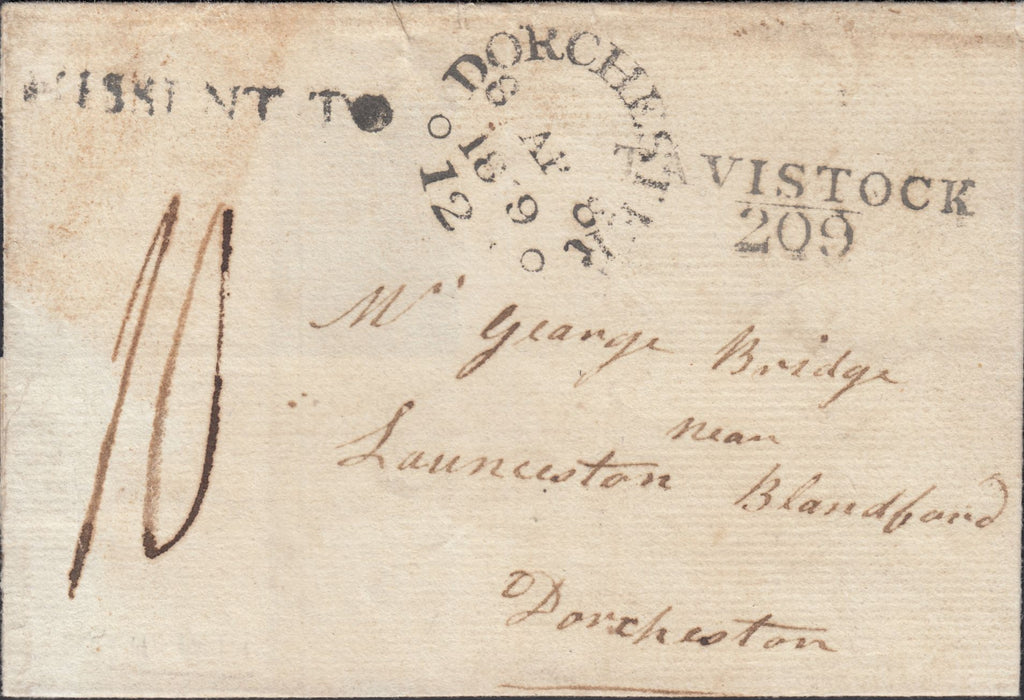 MISSENT TO
DORCHESTER
8 AP 8
18 9
12
TAVISTOCK
209
10
Mr George Bridge
near
Launceston Blandford
Dorcheston